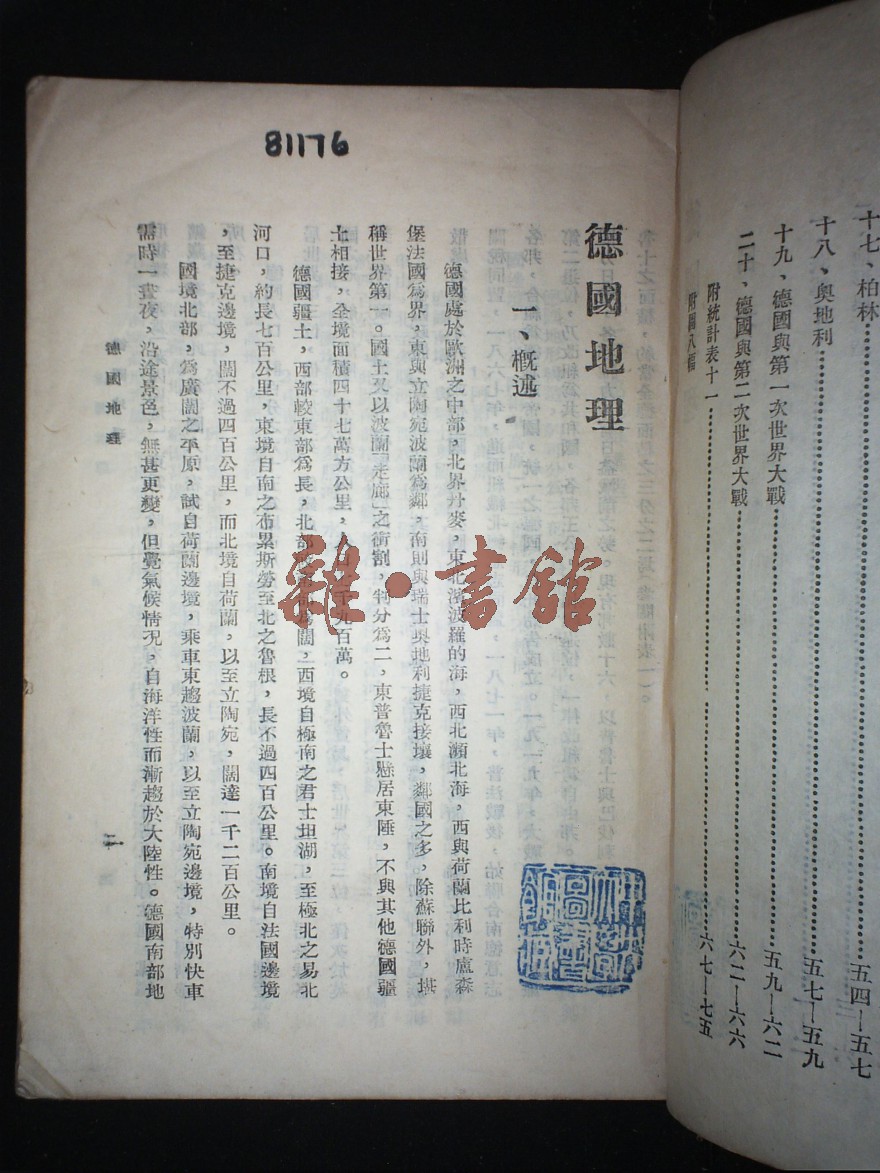 十七、柏林……五四—五七
十八、奧地利……五七—五九
十九、德國與第一次世界大戰……五九—六二
二十、德國與第二次世界大戰……六二—六六
附統計表十一……六七—七五
附圖八幅
81176
德國地理
一、槪述
德國處於歐洲之中部，北界丹麥，東北濱波羅的海，西北瀕北海，西與荷蘭比利時盧森
堡法國爲界，東與立陶宛波蘭爲鄰，南則與瑞士奧地利捷克接壤，鄰國之多，除蘇聯外，堪
稱世界第一。國土又以波蘭「走廊」之衝割，判分爲二，東普魯士懸居東陲，不與其他德國疆
土相接，全境面積四十七萬方公里，九百萬。
德國疆土，西部較東部爲長，北部爲闊，西境自極南之君士坦湖，至極北之易北
河口，約長七百公里，東境自南之布累斯勞至北之魯根，長不過四百公里。南境自法國邊境
，至捷克邊境，闊不過四百公里，而北境自荷蘭，以至立陶宛，闊達一千二百公里。
國境北部，爲廣闊之平原，試自荷蘭邊境，乘車東趨波蘭，以至立陶宛邊境，特別快車
需時一晝夜，沿途景色，無甚更變，但覺氣候情況，自海洋性而漸趨於大陸性。德國南部地
德國地理
雜·書館